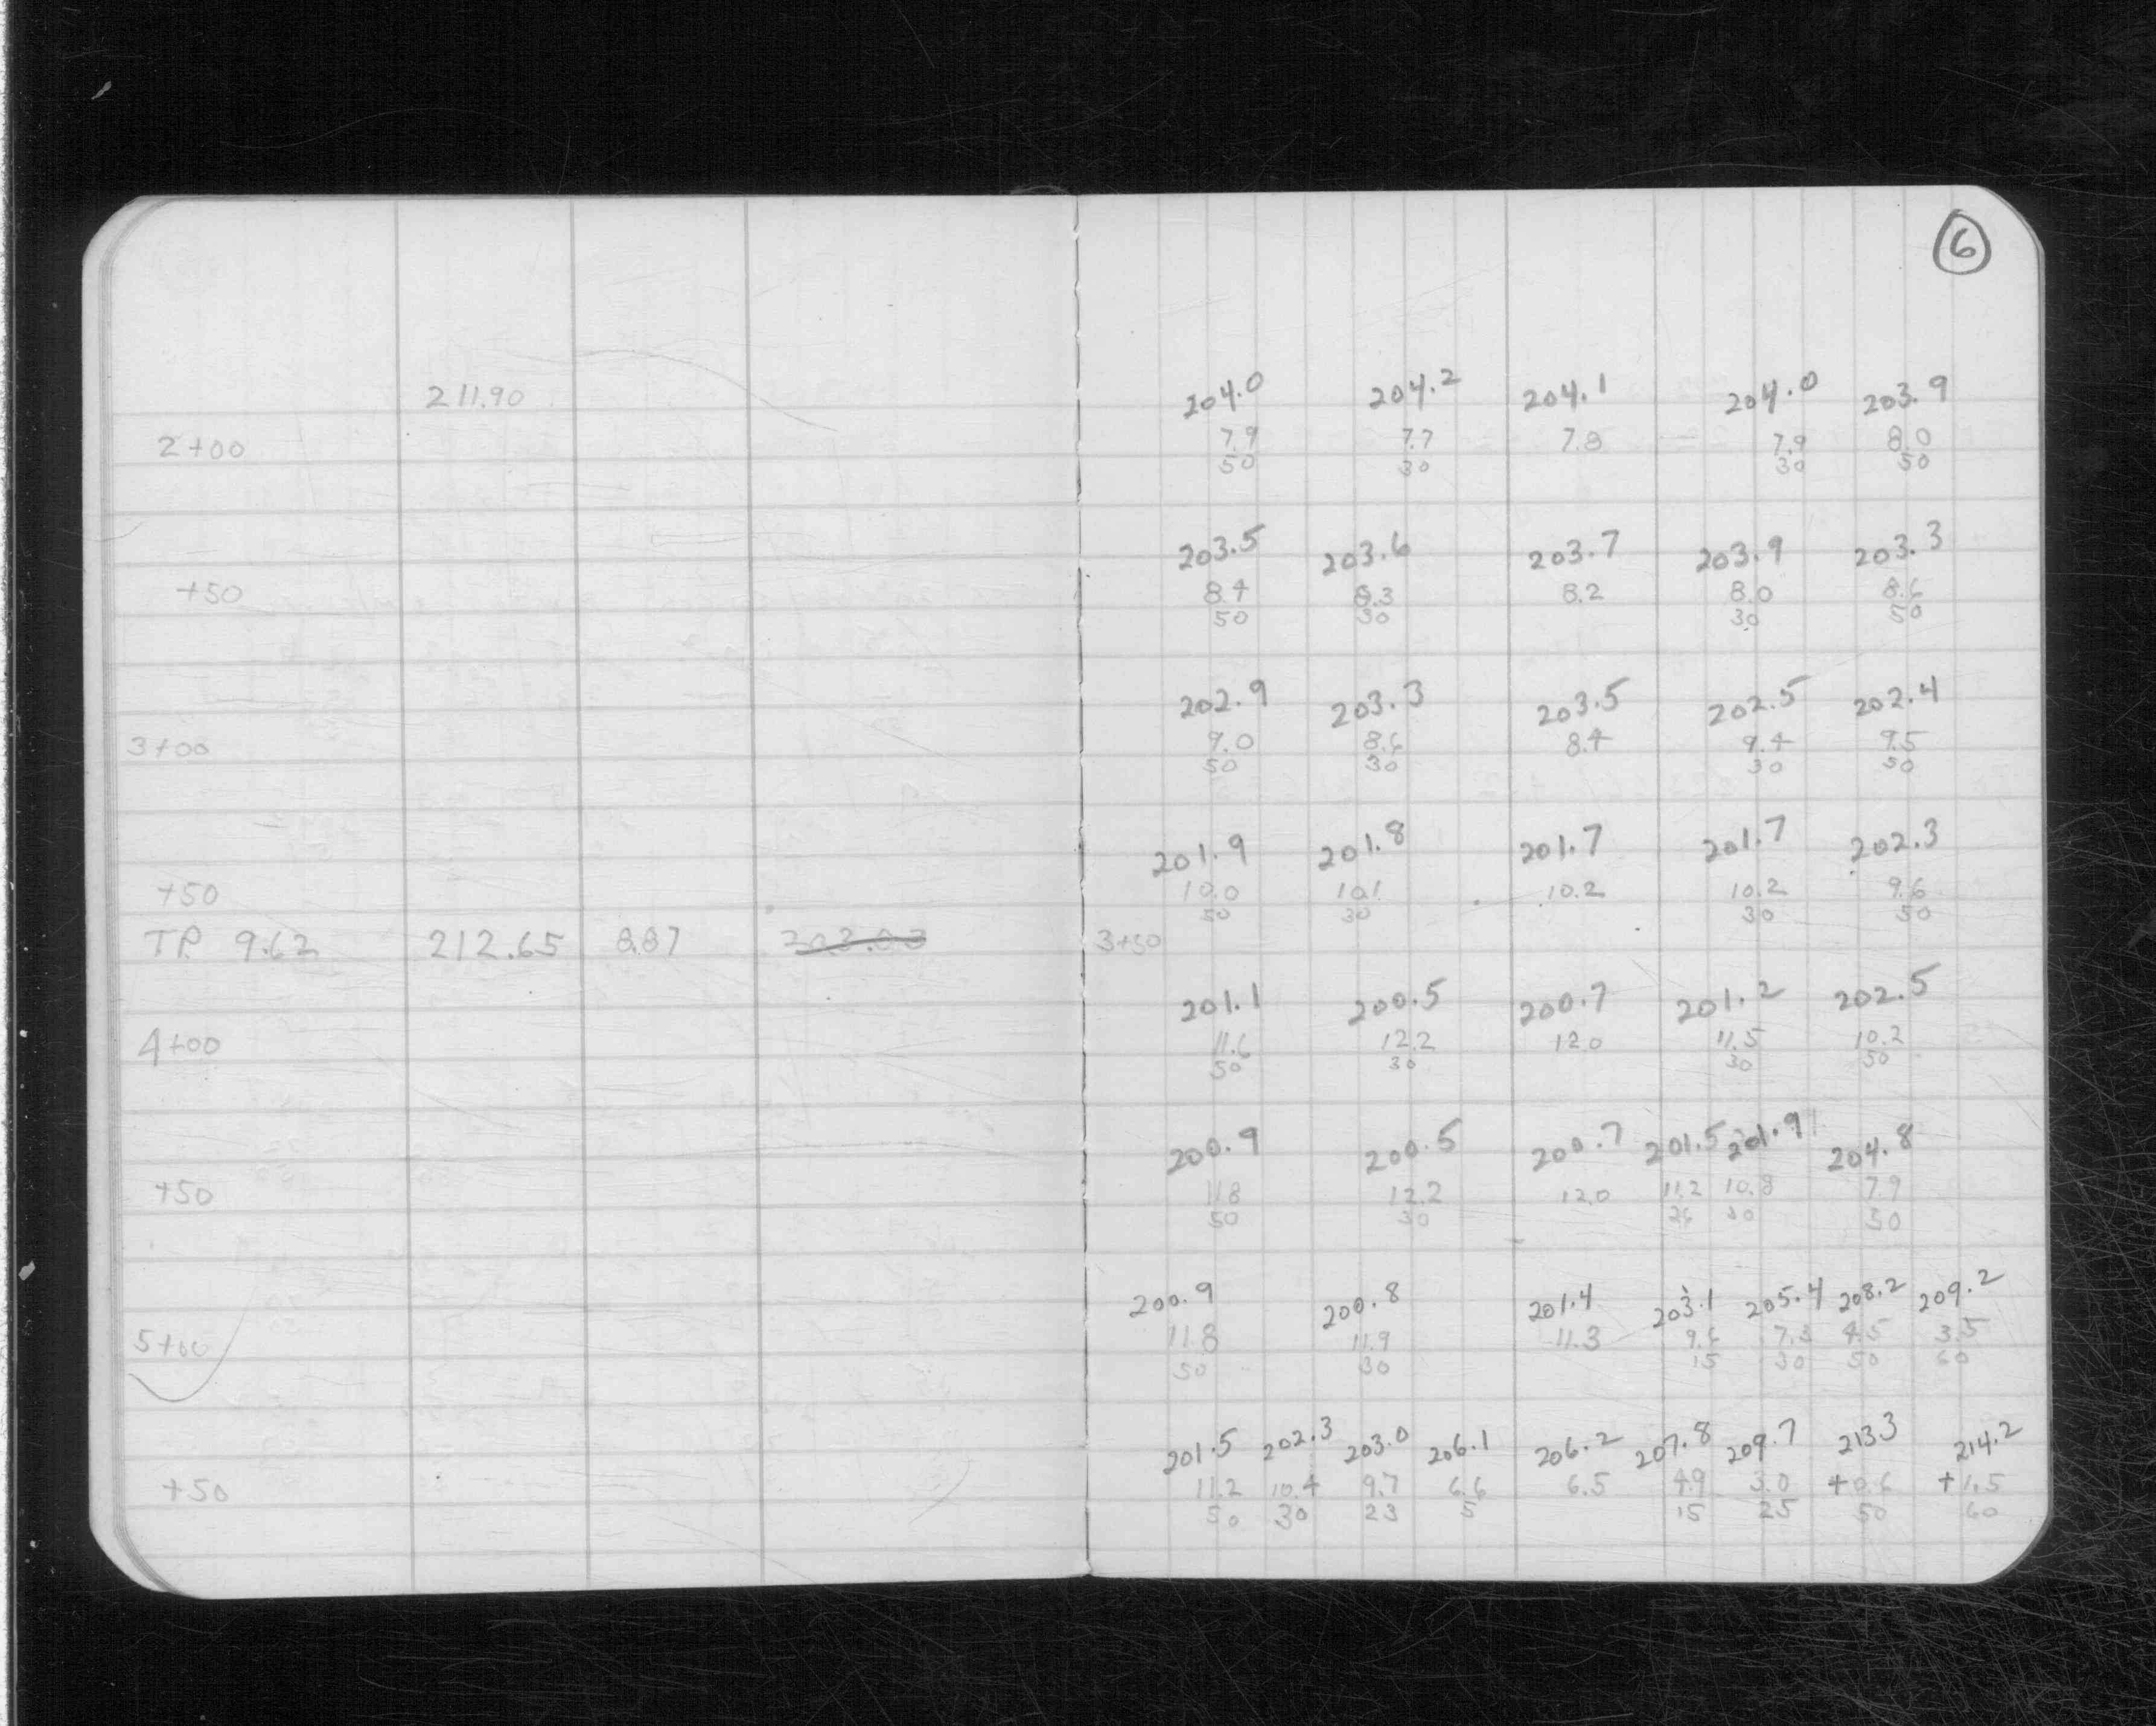 6
211.90 204.0 204.2 204.1 204.0 203.9
2+00 7.9 7.7 7.8 7.9 8.0
50 30 30 50
203.5 203.6 203.7 203.9 203.3
+50 8.4 8.3 8.2 8.0 8.6
50 30 30 50
202.9 203.3 203.5 202.5 202.4
3+00 9.0 8.6 8.4 9.4 9.5
50 30 30 50
201.9 201.8 201.7 201.7 202.3
+50 10.0 10.1 10.2 10.2 9.6
50 30 30 50
T.P. 9.62 212.65 8.87 203.03 3+50
201.1 200.5 200.7 201.2 202.5
4+00 11.6 12.2 12.0 11.5 10.2
50 30 30 50
200.9 200.5 200.7 201.5 201.9 204.8
+50 11.8 12.2 12.0 11.2 10.8 7.9
50 30 26 30 50
200.9 200.8 201.4 203.1 205.4 208.2 209.2
5+00 11.8 11.9 11.3 9.6 7.3 4.5 3.5
50 30 15 30 50 60
201.5 202.3 203.0 206.1 206.2 207.8 209.7 213.3 214.2
+50 11.2 10.4 9.7 6.6 6.5 4.9 3.0 +0.6 +1.5
50 30 23 5 15 25 50 60